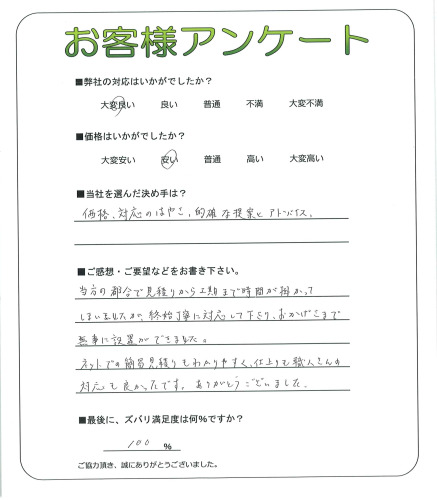 お客様アンケート
■弊社の対応はいかがでしたか？
大変良い 良い 普通 不満 大変不満
■価格はいかがでしたか？
大変安い 安い 普通 高い 大変高い
■当社を選んだ決め手は？
価格、対応のはやさ、的確な提案とアドバイス、
■ご感想・ご要望などをお書き下さい。
当方の都合で見積りから工期まで時間が掛かって
しまいましたが、終始丁寧に対応して下さり、おかげさまで
無事に設置ができました。
ネットでの簡易見積りもわかりやすく、仕上りも職人さんの
対応も良かったです。ありがとうございました。
■最後に、ズバリ満足度は何％ですか？
100 ％
ご協力頂き、誠にありがとうございました。